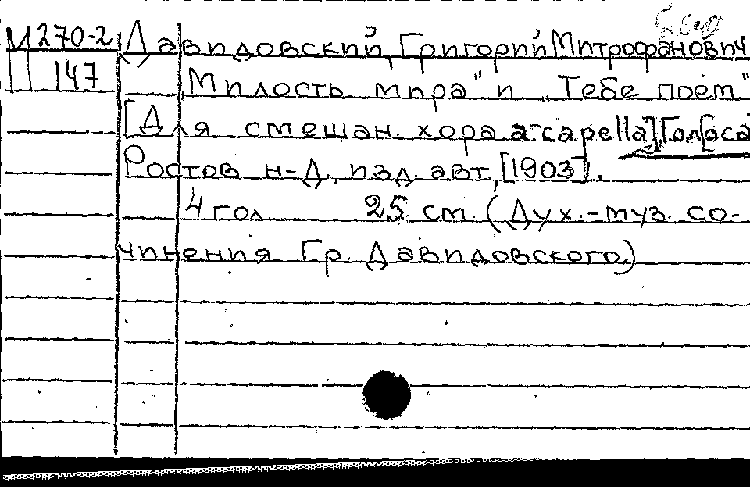 М 270-2 Давидовский, Григорий Митрофанович
147 „Милость мира" и „Тебе поем"
[Для смешан. хора a capella] Голоса
Ростов н-Д, изд. авт., [1903].
4 гол 25 см. (Дух.-муз. со-
чинения Гр. Давидовского.)